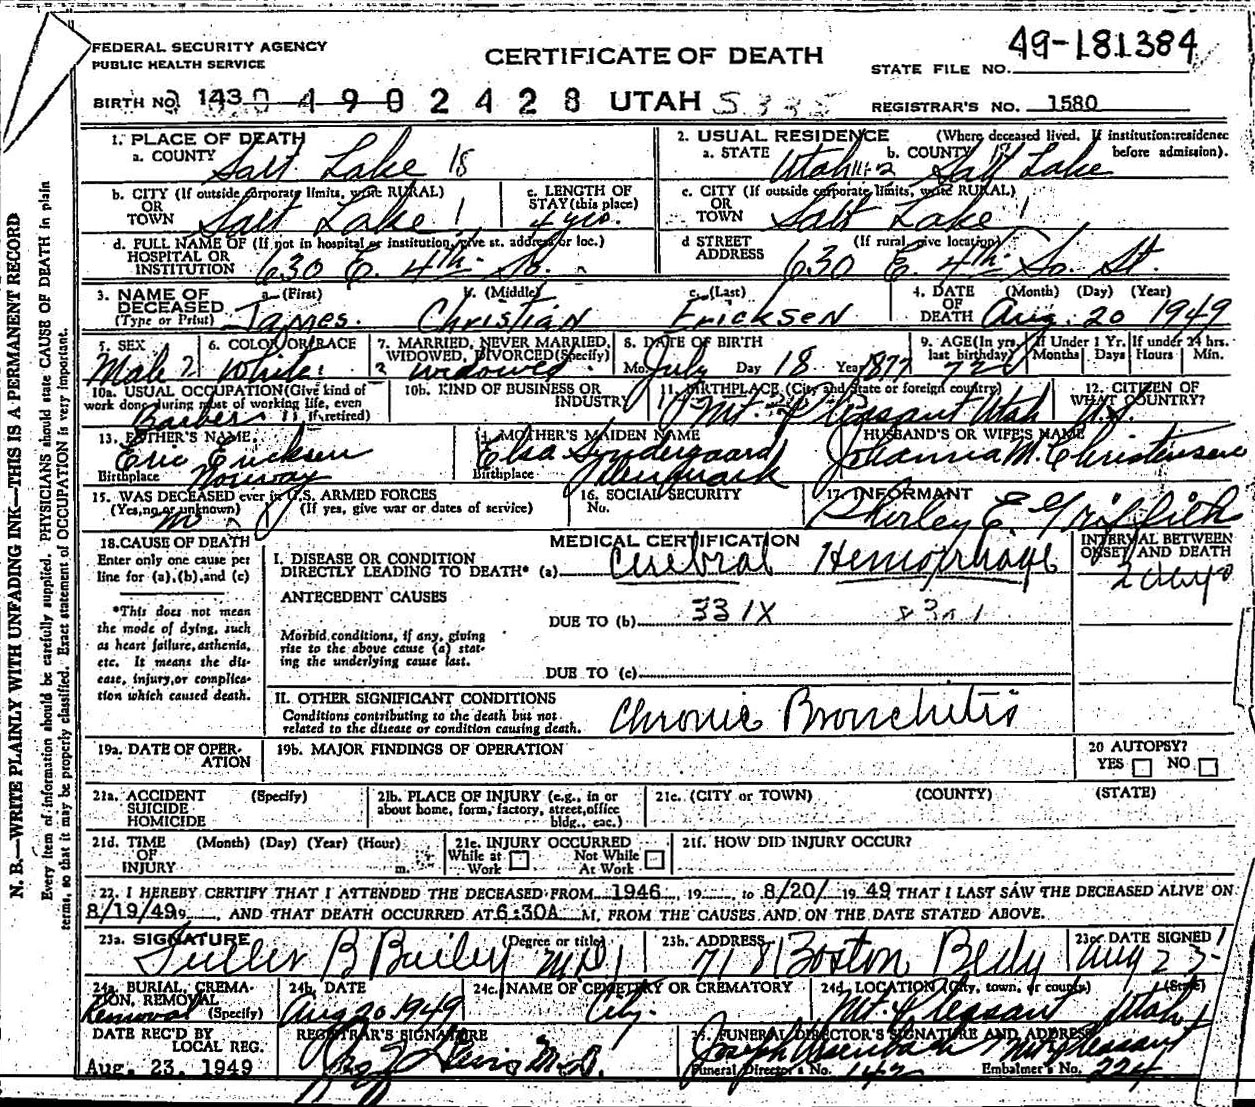 FEDERAL SECURITY AGENCY
PUBLIC HEALTH SERVICE
CERTIFICATE OF DEATH
49-181384
STATE FILE NO.
BIRTH NO. 1430 4902428 UTAH
REGISTRAR'S NO. 1580
N. B.—WRITE PLAINLY WITH UNFADING INK—THIS IS A PERMANENT RECORD
Every item of information should be carefully supplied. PHYSICIANS should state CAUSE OF DEATH in plain
terms, so that it may be properly classified. Exact statement of OCCUPATION is very important.
1. PLACE OF DEATH
a. COUNTY Salt Lake 18
2. USUAL RESIDENCE (Where deceased lived. If institution:residence before admission).
a. STATE Utah b. COUNTY Salt Lake
b. CITY (If outside corporate limits, write RURAL) OR TOWN Salt Lake 1
c. LENGTH OF STAY (this place) 4 yrs.
c. CITY (If outside corporate limits, write RURAL) OR TOWN Salt Lake 1
d. FULL NAME OF (If not in hospital or institution, give st. address or loc.) HOSPITAL OR INSTITUTION 630 E. 4th So.
d STREET ADDRESS (If rural, give location) 630 E. 4th So. St.
3. NAME OF DECEASED (Type or Print) a. (First) James b. (Middle) Christian c. (Last) Ericksen
4. DATE OF DEATH (Month) (Day) (Year) Aug. 20 1949
5. SEX Male
6. COLOR OR RACE White
7. MARRIED, NEVER MARRIED, WIDOWED, DIVORCED (Specify) Widowed
8. DATE OF BIRTH Mo. July Day 18 Year 1877
9. AGE (In yrs. last birthday) 72
If Under 1 Yr. Months Days
If under 24 hrs. Hours Min.
10a. USUAL OCCUPATION (Give kind of work done during most of working life, even if retired) Barber
10b. KIND OF BUSINESS OR INDUSTRY
11. BIRTHPLACE (City and State or foreign country) Mt Pleasant Utah
12. CITIZEN OF WHAT COUNTRY? U.S.
13. FATHER'S NAME Eric Ericksen
Birthplace Norway
14. MOTHER'S MAIDEN NAME Elsa
Birthplace Denmark
HUSBAND'S OR WIFE'S NAME Johanna M. Christensen
15. WAS DECEASED ever in U.S. ARMED FORCES
(Yes, no, or unknown) (If yes, give war or dates of service)
no
16. SOCIAL SECURITY No.
17. INFORMANT Shirley E. Griffith
18. CAUSE OF DEATH
Enter only one cause per
line for (a), (b), and (c)
*This does not mean
the mode of dying, such
as heart failure, asthenia,
etc. It means the dis-
ease, injury, or complica-
tion which caused death.
MEDICAL CERTIFICATION
INTERVAL BETWEEN ONSET AND DEATH
I. DISEASE OR CONDITION
DIRECTLY LEADING TO DEATH* (a) Cerebral Hemorrhage
2 days
ANTECEDENT CAUSES
DUE TO (b) 331X
Morbid conditions, if any, giving
rise to the above cause (a) stat-
ing the underlying cause last.
DUE TO (c)
II. OTHER SIGNIFICANT CONDITIONS
Conditions contributing to the death but not
related to the disease or condition causing death.
Chronic Bronchitis
19a. DATE OF OPER-
ATION
19b. MAJOR FINDINGS OF OPERATION
20 AUTOPSY?
YES NO
21a. ACCIDENT SUICIDE HOMICIDE (Specify)
21b. PLACE OF INJURY (e.g., in or about home, form, factory, street, office bldg., eac.)
21c. (CITY or TOWN) (COUNTY) (STATE)
21d. TIME OF INJURY (Month) (Day) (Year) (Hour) m.
21e. INJURY OCCURRED While at Work Not While At Work
21f. HOW DID INJURY OCCUR?
22. I HEREBY CERTIFY THAT I ATTENDED THE DECEASED FROM 1946, 19, to 8/20/ 19 49 THAT I LAST SAW THE DECEASED ALIVE ON
8/19/49 9, AND THAT DEATH OCCURRED AT 6:30A M, FROM THE CAUSES AND ON THE DATE STATED ABOVE.
23a. SIGNATURE (Degree or title) Fuller B Bailey M.D.
23b. ADDRESS 718 Boston Bldg
23c. DATE SIGNED Aug 23
24a. BURIAL, CREMA-
TION, REMOVAL (Specify) Removal
24b. DATE Aug 20 1949
24c. NAME OF CEMETERY OR CREMATORY City
24d. LOCATION (City, town, or county) (State) Mt. Pleasant Utah
DATE REC'D BY LOCAL REG. Aug. 23, 1949
REGISTRAR'S SIGNATURE
25. FUNERAL DIRECTOR'S SIGNATURE AND ADDRESS Joseph Mt Pleasant
Funeral Director's No. 142 Embalmer's No. 224